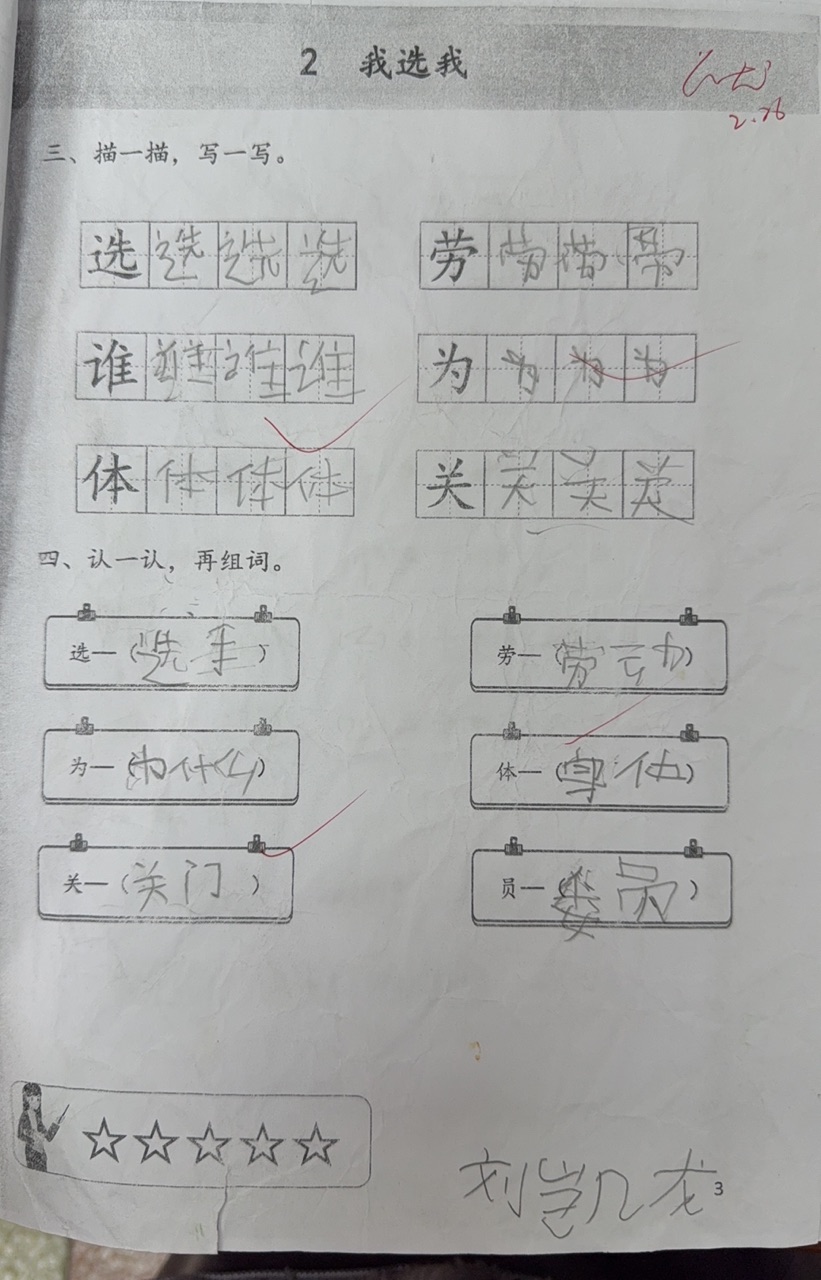 2 我选我
2.26
三、描一描，写一写。
选 选 选 选 劳 劳 劳 劳
谁 谁 谁 谁 为 为 为 为
体 体 体 体 关 关 关 关
四、认一认，再组词。
选—（选手） 劳—（劳动）
为—（为什么） 体—（身体）
关—（关门） 员—（委员）
刘凯龙
3